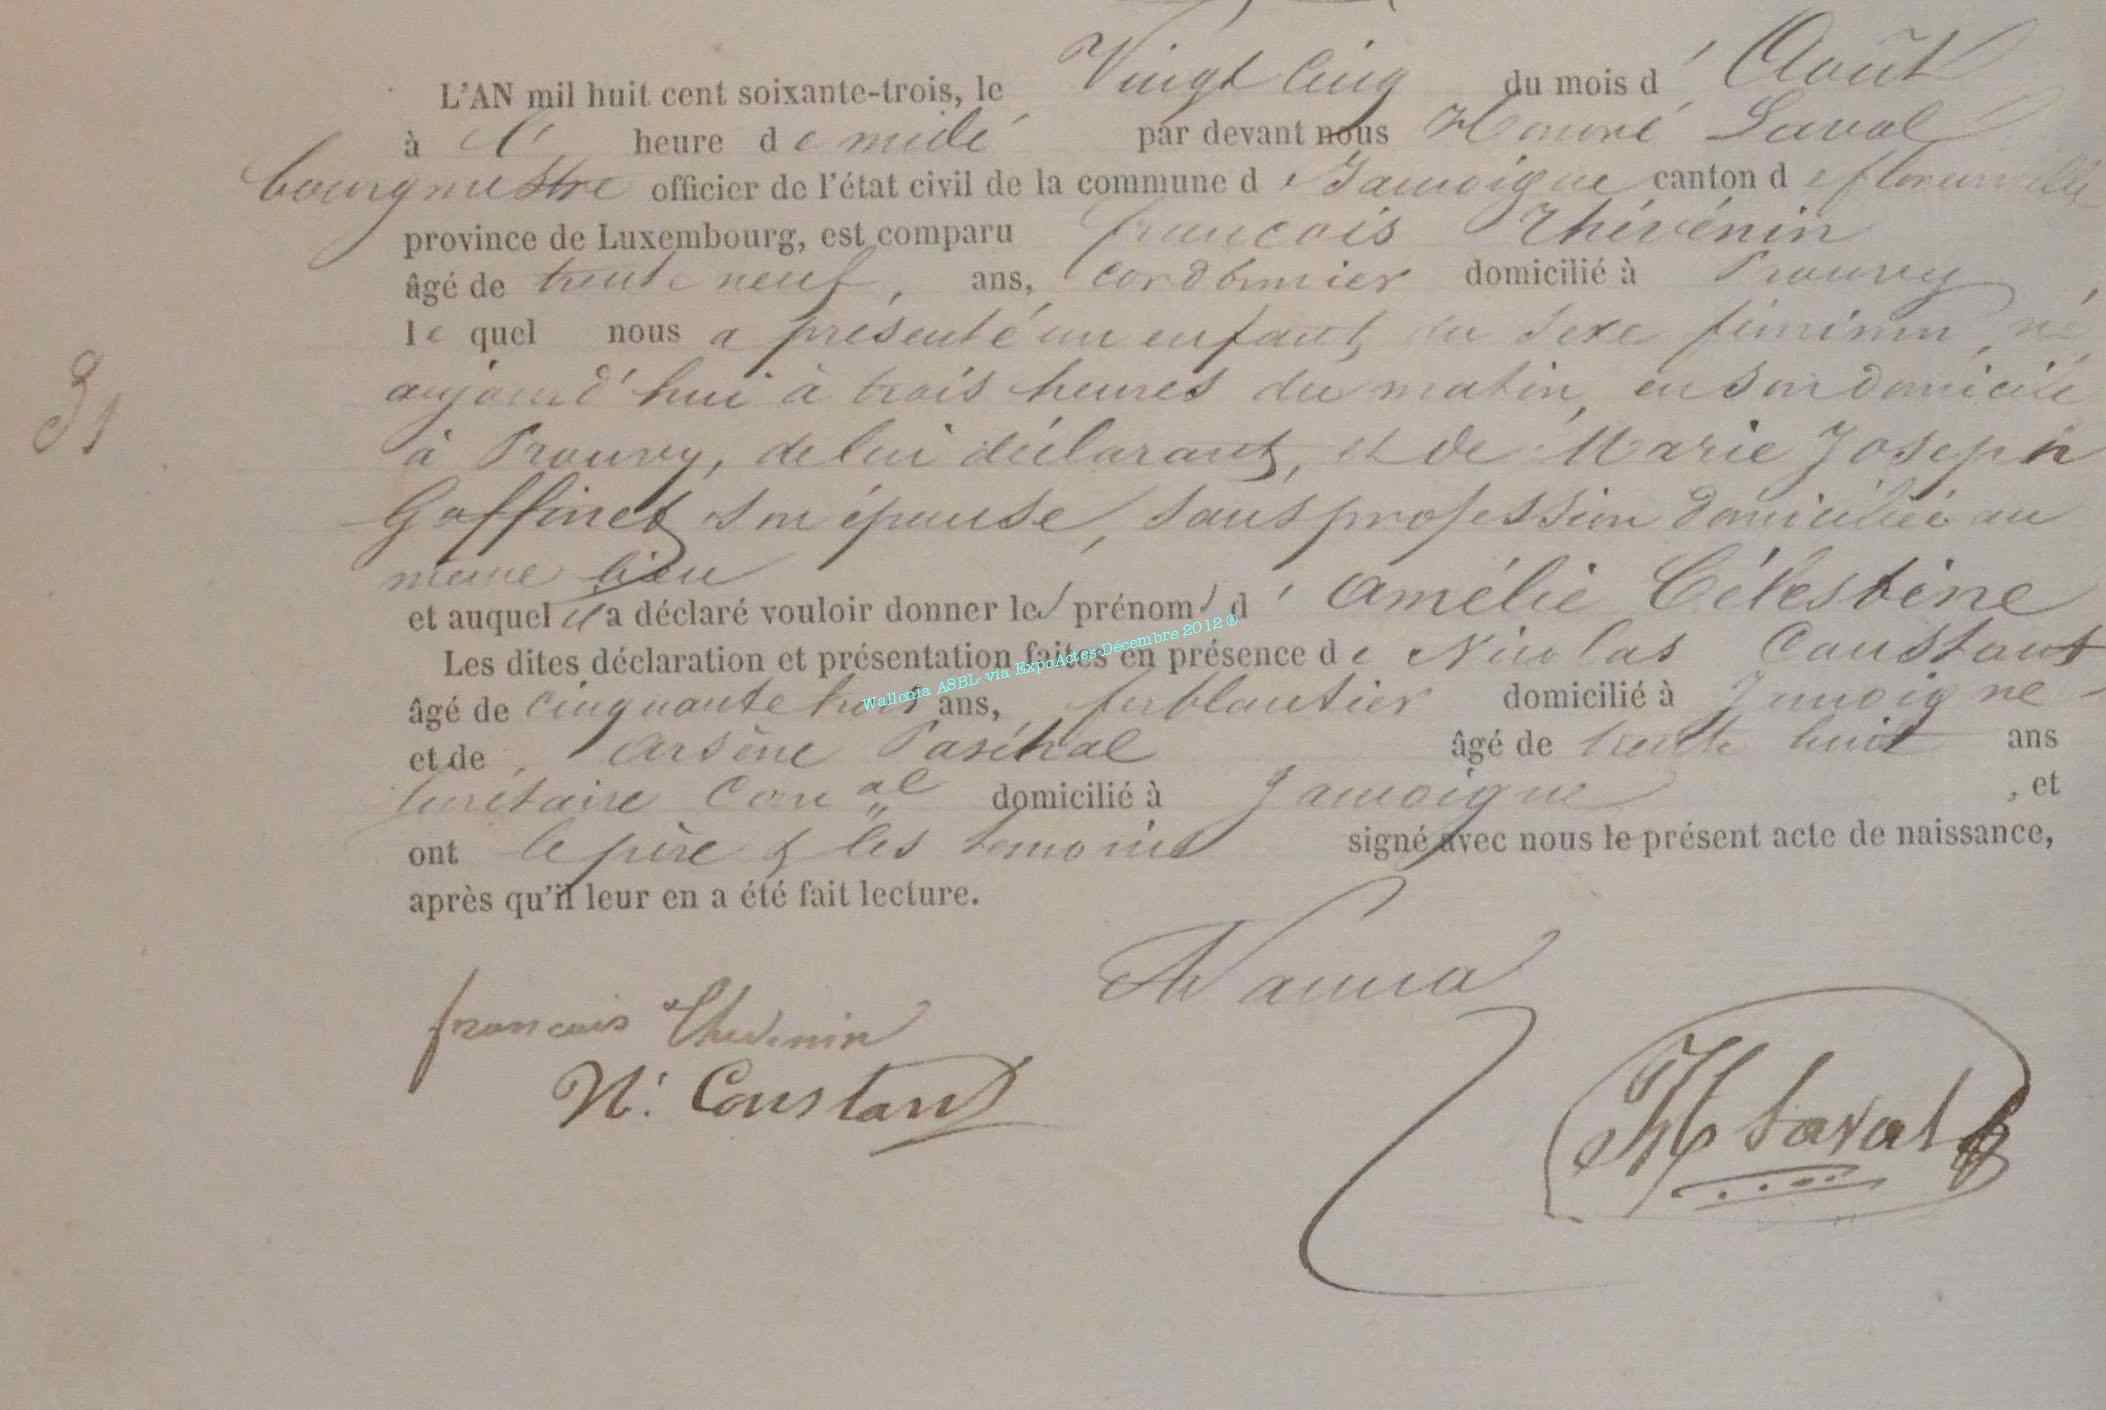 L'AN mil huit cent soixante-trois, le Vingt Cinq du mois d' Août
à l' heure de midi par devant nous Honoré Laval
bourgmestre officier de l'état civil de la commune de Jamoigne canton de florenville
province de Luxembourg, est comparu françois Thévénin
âgé de trente neuf, ans, cordonnier domicilié à Prouvy,
lequel nous a présenté un enfant, du sexe féminin, né
aujourd'hui à trois heures du matin, en son domicile
à Prouvy, de lui déclarant, et de Marie Joseph
Goffinet son épouse, sans profession domiciliée au
même lieu
et auquel il a déclaré vouloir donner les prénoms d' Amélie Célestine
Les dites déclaration et présentation faites en présence de Nicolas Constant
âgé de cinquante trois ans, ferblantier domicilié à Jamoigne
et de Arsène âgé de trente huit ans
secrétaire Comal domicilié à Jamoigne, et
ont le père & les témoins signé avec nous le présent acte de naissance,
après qu'il leur en a été fait lecture.
31
Wallonia ASBL via ExpoActes-Décembre 2012 ®
francois Thevenin
N. Constant
H Laval